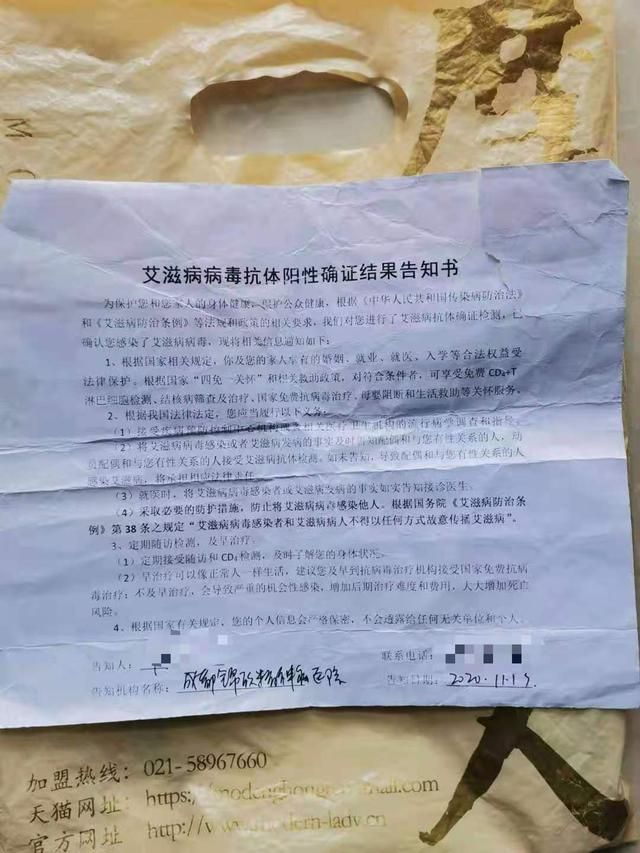 艾滋病病毒抗体阳性确证结果告知书
为保护您和您家人的身体健康，保护公众健康，根据《中华人民共和国传染病防治法》
和《艾滋病防治条例》等法规和政策的相关要求，我们对您进行了艾滋病抗体确证检测，已
确认您感染了艾滋病病毒，现将相关信息通知如下：
1、根据国家相关规定，你及您的家人享有的婚姻、就业、就医、入学等合法权益受
法律保护。根据国家“四免一关怀”和相关救助政策，对符合条件者，可享受免费 CD₄+T
淋巴细胞检测、结核病筛查及治疗、国家免费抗病毒治疗、母婴阻断和生活救助等关怀服务。
2、根据我国法律法定，您应当履行以下义务：
（1）接受疾病预防控制中心机构或其相关医疗卫生机构的流行病学调查和指导。
（2）将艾滋病病毒感染或者艾滋病发病的事实及时告知配偶和与您有性关系的人，动
员配偶和与您有性关系的人接受艾滋病抗体检测。如未告知，导致配偶和与您有性关系的人
感染艾滋病，将承担相应法律责任。
（3）就医时，将艾滋病病毒感染者或艾滋病发病的事实如实告知接诊医生。
（4）采取必要的防护措施，防止将艾滋病病毒感染他人。根据国务院《艾滋病防治条
例》第 38 条之规定“艾滋病病毒感染者和艾滋病病人不得以任何方式故意传播艾滋病”。
3、定期随访检测，及早治疗。
（1）定期接受随访和 CD₄检测，及时了解您的身体状况。
（2）早治疗可以像正常人一样生活，建议您及早到抗病毒治疗机构接受国家免费抗病
毒治疗；不及早治疗，会导致严重的机会性感染，增加后期治疗难度和费用，大大增加死亡
风险。
4、根据国家有关规定，您的个人信息会严格保密，不会透露给任何无关单位和个人。
告知人：
联系电话：
告知机构名称：成都 医院
告知日期：2020.11.19
加盟热线：021-58967660
天猫网址：https:
官方网址 http://www.modern-lady.cn